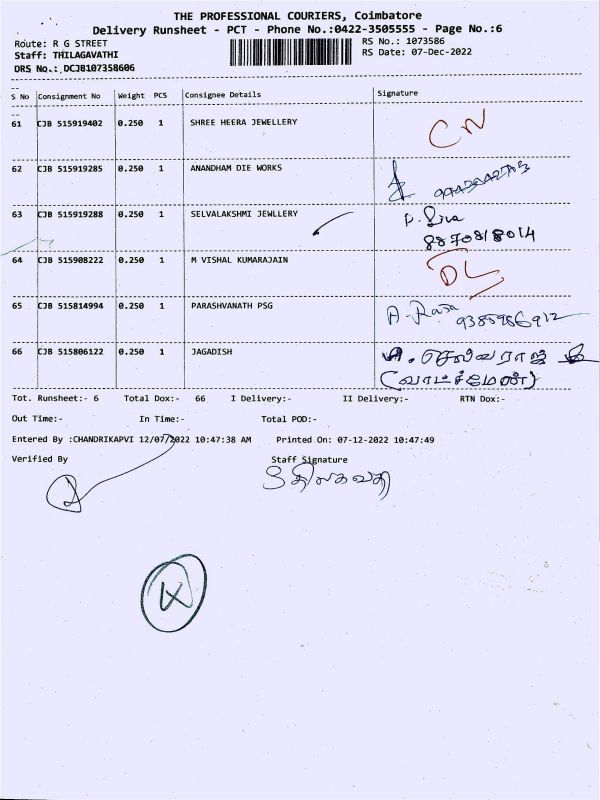 THE PROFESSIONAL COURIERS, Coimbatore
Delivery Runsheet - PCT - Phone No.:0422-3505555 - Page No.:6
Route: R G STREET
RS No.: 1073586
Staff: THILAGAVATHI
RS Date: 07-Dec-2022
DRS No.: DCJB107358606
S No Consignment No Weight PCS Consignee Details Signature
61 CJB 515919402 0.250 1 SHREE HEERA JEWELLERY CN
62 CJB 515919285 0.250 1 ANANDHAM DIE WORKS
63 CJB 515919288 0.250 1 SELVALAKSHMI JEWLLERY P. Siva
8870818014
64 CJB 515908222 0.250 1 M VISHAL KUMARAJAIN DL
65 CJB 515814994 0.250 1 PARASHVANATH PSG A. Raja
9385986912
66 CJB 515806122 0.250 1 JAGADISH A. செல்வராஜ்
(வாட்ச்மேன்)
Tot. Runsheet:- 6 Total Dox:- 66 I Delivery:- II Delivery:- RTN Dox:-
Out Time:- In Time:- Total POD:-
Entered By :CHANDRIKAPVI 12/07/2022 10:47:38 AM Printed On: 07-12-2022 10:47:49
Verified By Staff Signature
திலகவதி